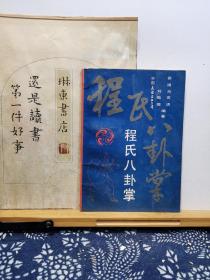 還是讀書
第一件好事
琳東書店
程氏八卦掌
程氏八卦掌